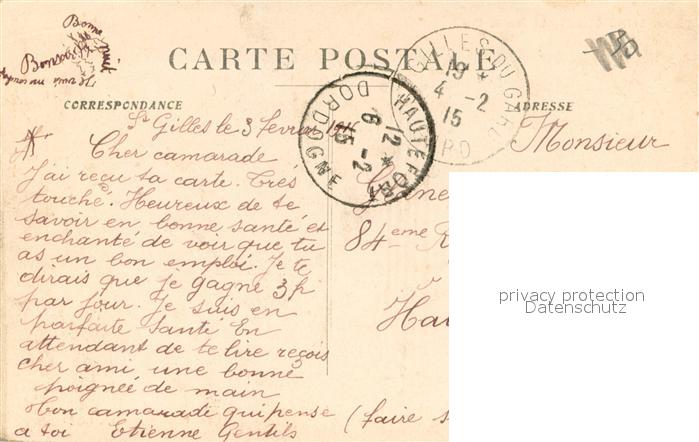 Bonne nuit
Bonsoir
Je vais
CARTE POSTALE
CORRESPONDANCE
ADRESSE
ST GILLES DU GARD
19 *
4 -2
15
GARD
HAUTEFORT
12 *
6 -2
15
DORDOGNE
St Gilles le 3 fevrier 1915
Cher camarade
J'ai reçu ta carte. Très
touché. Heureux de te
savoir en bonne santé et
enchanté de voir que tu
as un bon emploi. Je te
dirais que je gagne 3f
par jour. Je suis en
parfaite santé En
attendant de te lire reçois
cher ami une bonne
poignée de main
Mon camarade qui pense
a toi Etienne Gentils
Monsieur
84eme R
Hau
(faire s
privacy protection
Datenschutz